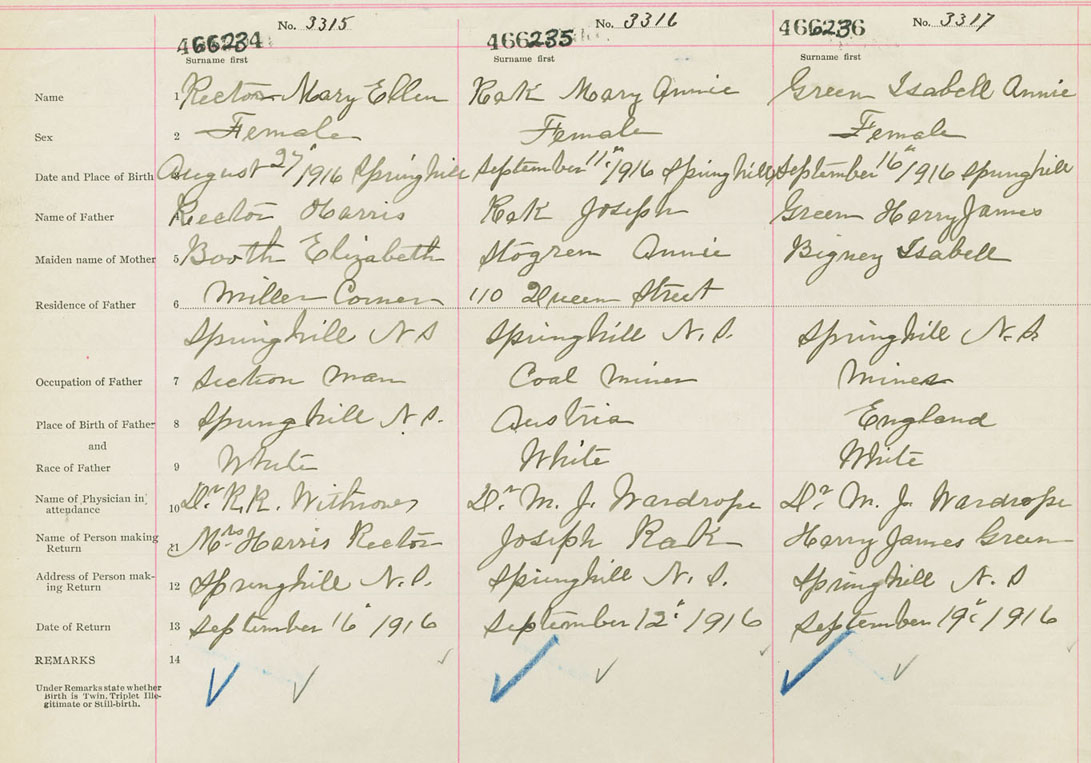 No. 3315 No. 3316 No. 3317
466234 466235 466236
Surname first Surname first Surname first
Name 1 Rector Mary Ellen Rak Mary Annie Green Isabell Annie
Sex 2 Female Female Female
Date and Place of Birth August 27"/1916 Springhill September 11"/1916 Springhill September 16"/1916 Springhill
Name of Father 4 Rector Harris Rak Joseph Green Harry James
Maiden name of Mother 5 Booth Elizabeth Stogren Annie Bigney Isabell
Residence of Father 6 Miller Corner 110 Queen Street
Springhill N S Springhill N. S. Springhill N. S
Occupation of Father 7 Section Man Coal Miner Miner
Place of Birth of Father 8 Springhill N. S. Austria England
and
Race of Father 9 White White White
Name of Physician in attendance 10 Dr. R.R. Withrow Dr M. J. Wardrope Dr M. J. Wardrope
Name of Person making Return 11 Mrs Harris Rector Joseph Rak Harry James Green
Address of Person mak-
ing Return 12 Springhill N. S. Springhill N. S. Springhill N. S
Date of Return 13 September 16" 1916 September 12" 1916 September 19" 1916
REMARKS 14
Under Remarks state whether
Birth is Twin, Triplet Ille-
gitimate or Still-birth.